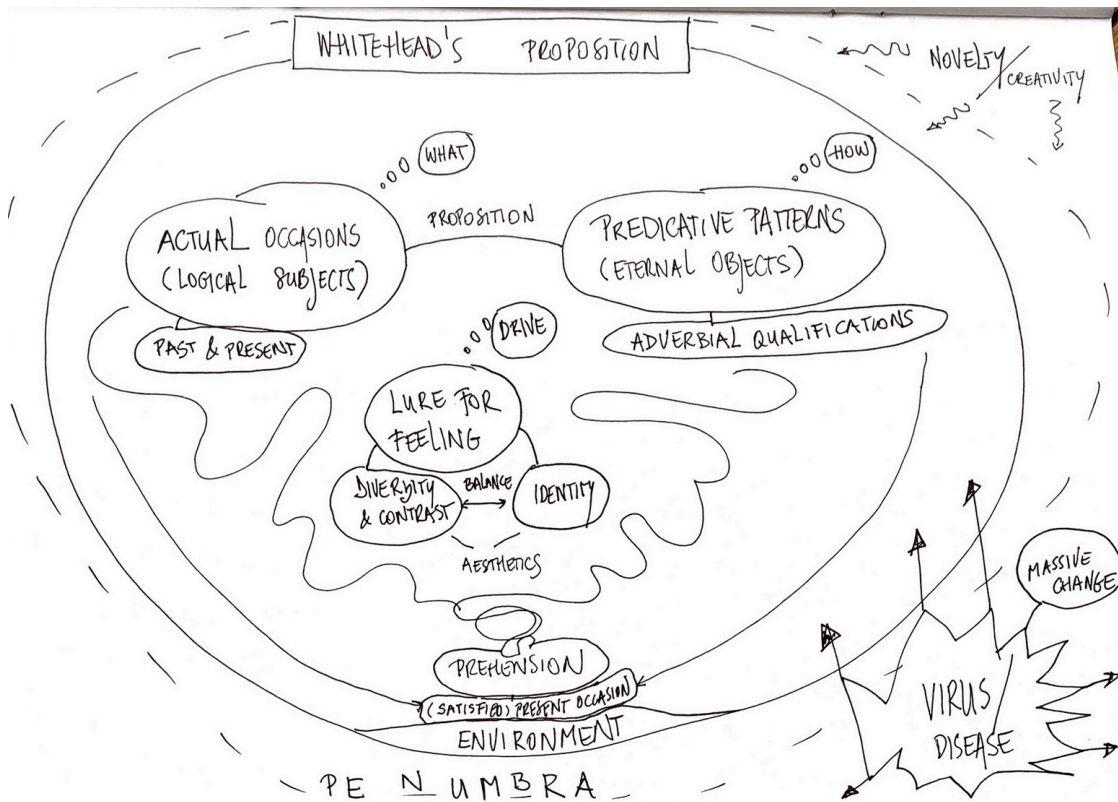 WHITEHEAD'S PROPOSITION
NOVELTY/
CREATIVITY
WHAT
HOW
ACTUAL OCCASIONS
(LOGICAL SUBJECTS)
PROPOSITION
PREDICATIVE PATTERNS
(ETERNAL OBJECTS)
PAST & PRESENT
DRIVE
ADVERBIAL QUALIFICATIONS
LURE FOR
FEELING
DIVERSITY
& CONTRAST
BALANCE
IDENTITY
AESTHETICS
MASSIVE
CHANGE
PREHENSION
(SATISFIED) PRESENT OCCASION
ENVIRONMENT
VIRUS
DISEASE
PENUMBRA